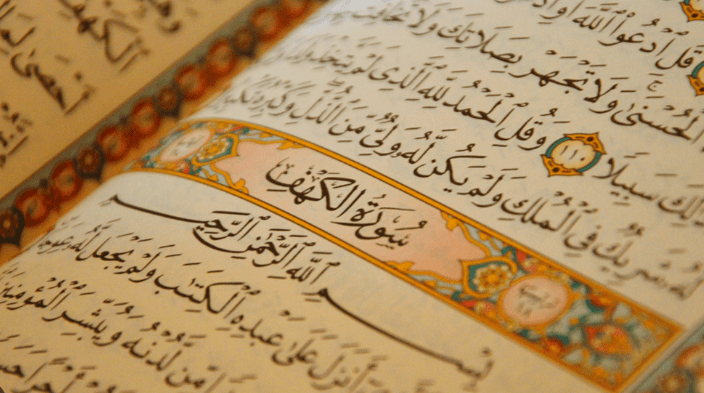 قُلِ ٱدْعُوا۟ ٱللَّهَ أَوِ
ٱلْحُسْنَىٰ وَلَا تَجْهَرْ بِصَلَاتِكَ وَلَا تُخَافِتْ
ذَٰلِكَ سَبِيلًا ١١٠ وَقُلِ ٱلْحَمْدُ لِلَّهِ ٱلَّذِى لَمْ يَتَّخِذْ
لَّهُۥ شَرِيكٌ فِى ٱلْمُلْكِ وَلَمْ يَكُن لَّهُۥ وَلِىٌّ مِّنَ ٱلذُّلِّ وَكَبِّرْهُ تَكْبِيرًا
سُورَةُ ٱلْكَهْفِ
بِسْمِ ٱللَّهِ ٱلرَّحْمَٰنِ ٱلرَّحِيمِ
أَنزَلَ عَلَىٰ عَبْدِهِ ٱلْكِتَٰبَ وَلَمْ يَجْعَل لَّهُۥ عِوَجَا
مِّن لَّدُنْهُ وَيُبَشِّرَ ٱلْمُؤْمِنِينَ
أَجْرًا
ٱلْكَهْفِ
أَحْصَىٰ لِمَا